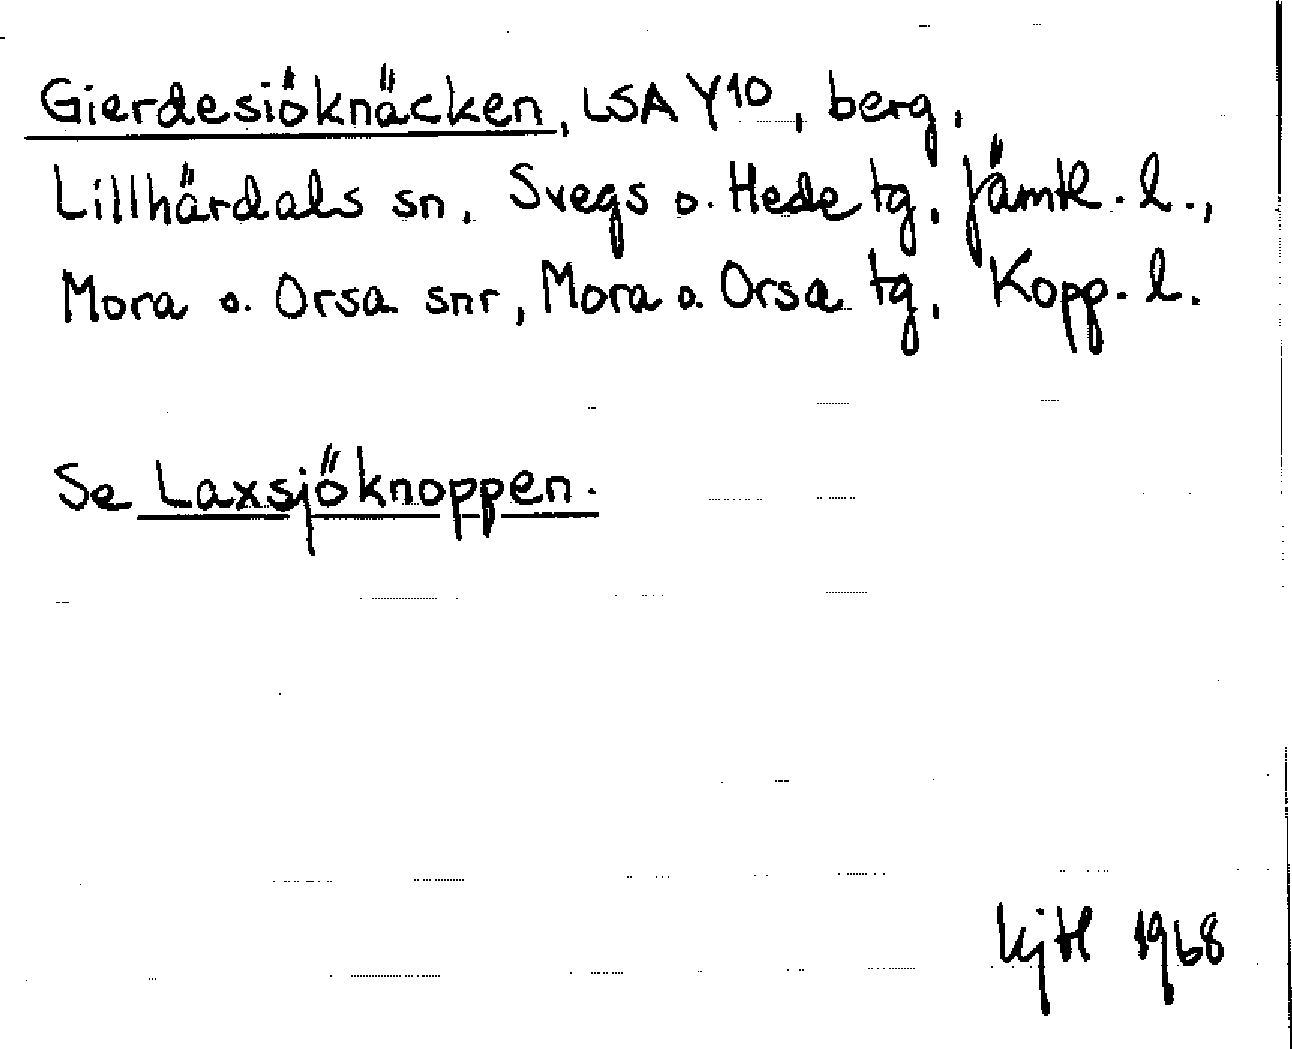 Gierdesiöknäcken, LSA Y10, berg,
Lillhärdals sn, Svegs o. Hede tg, Jämtl. l.,
Mora o. Orsa snr, Mora o. Orsa tg, Kopp. l.
Se Laxsjöknoppen.
1968